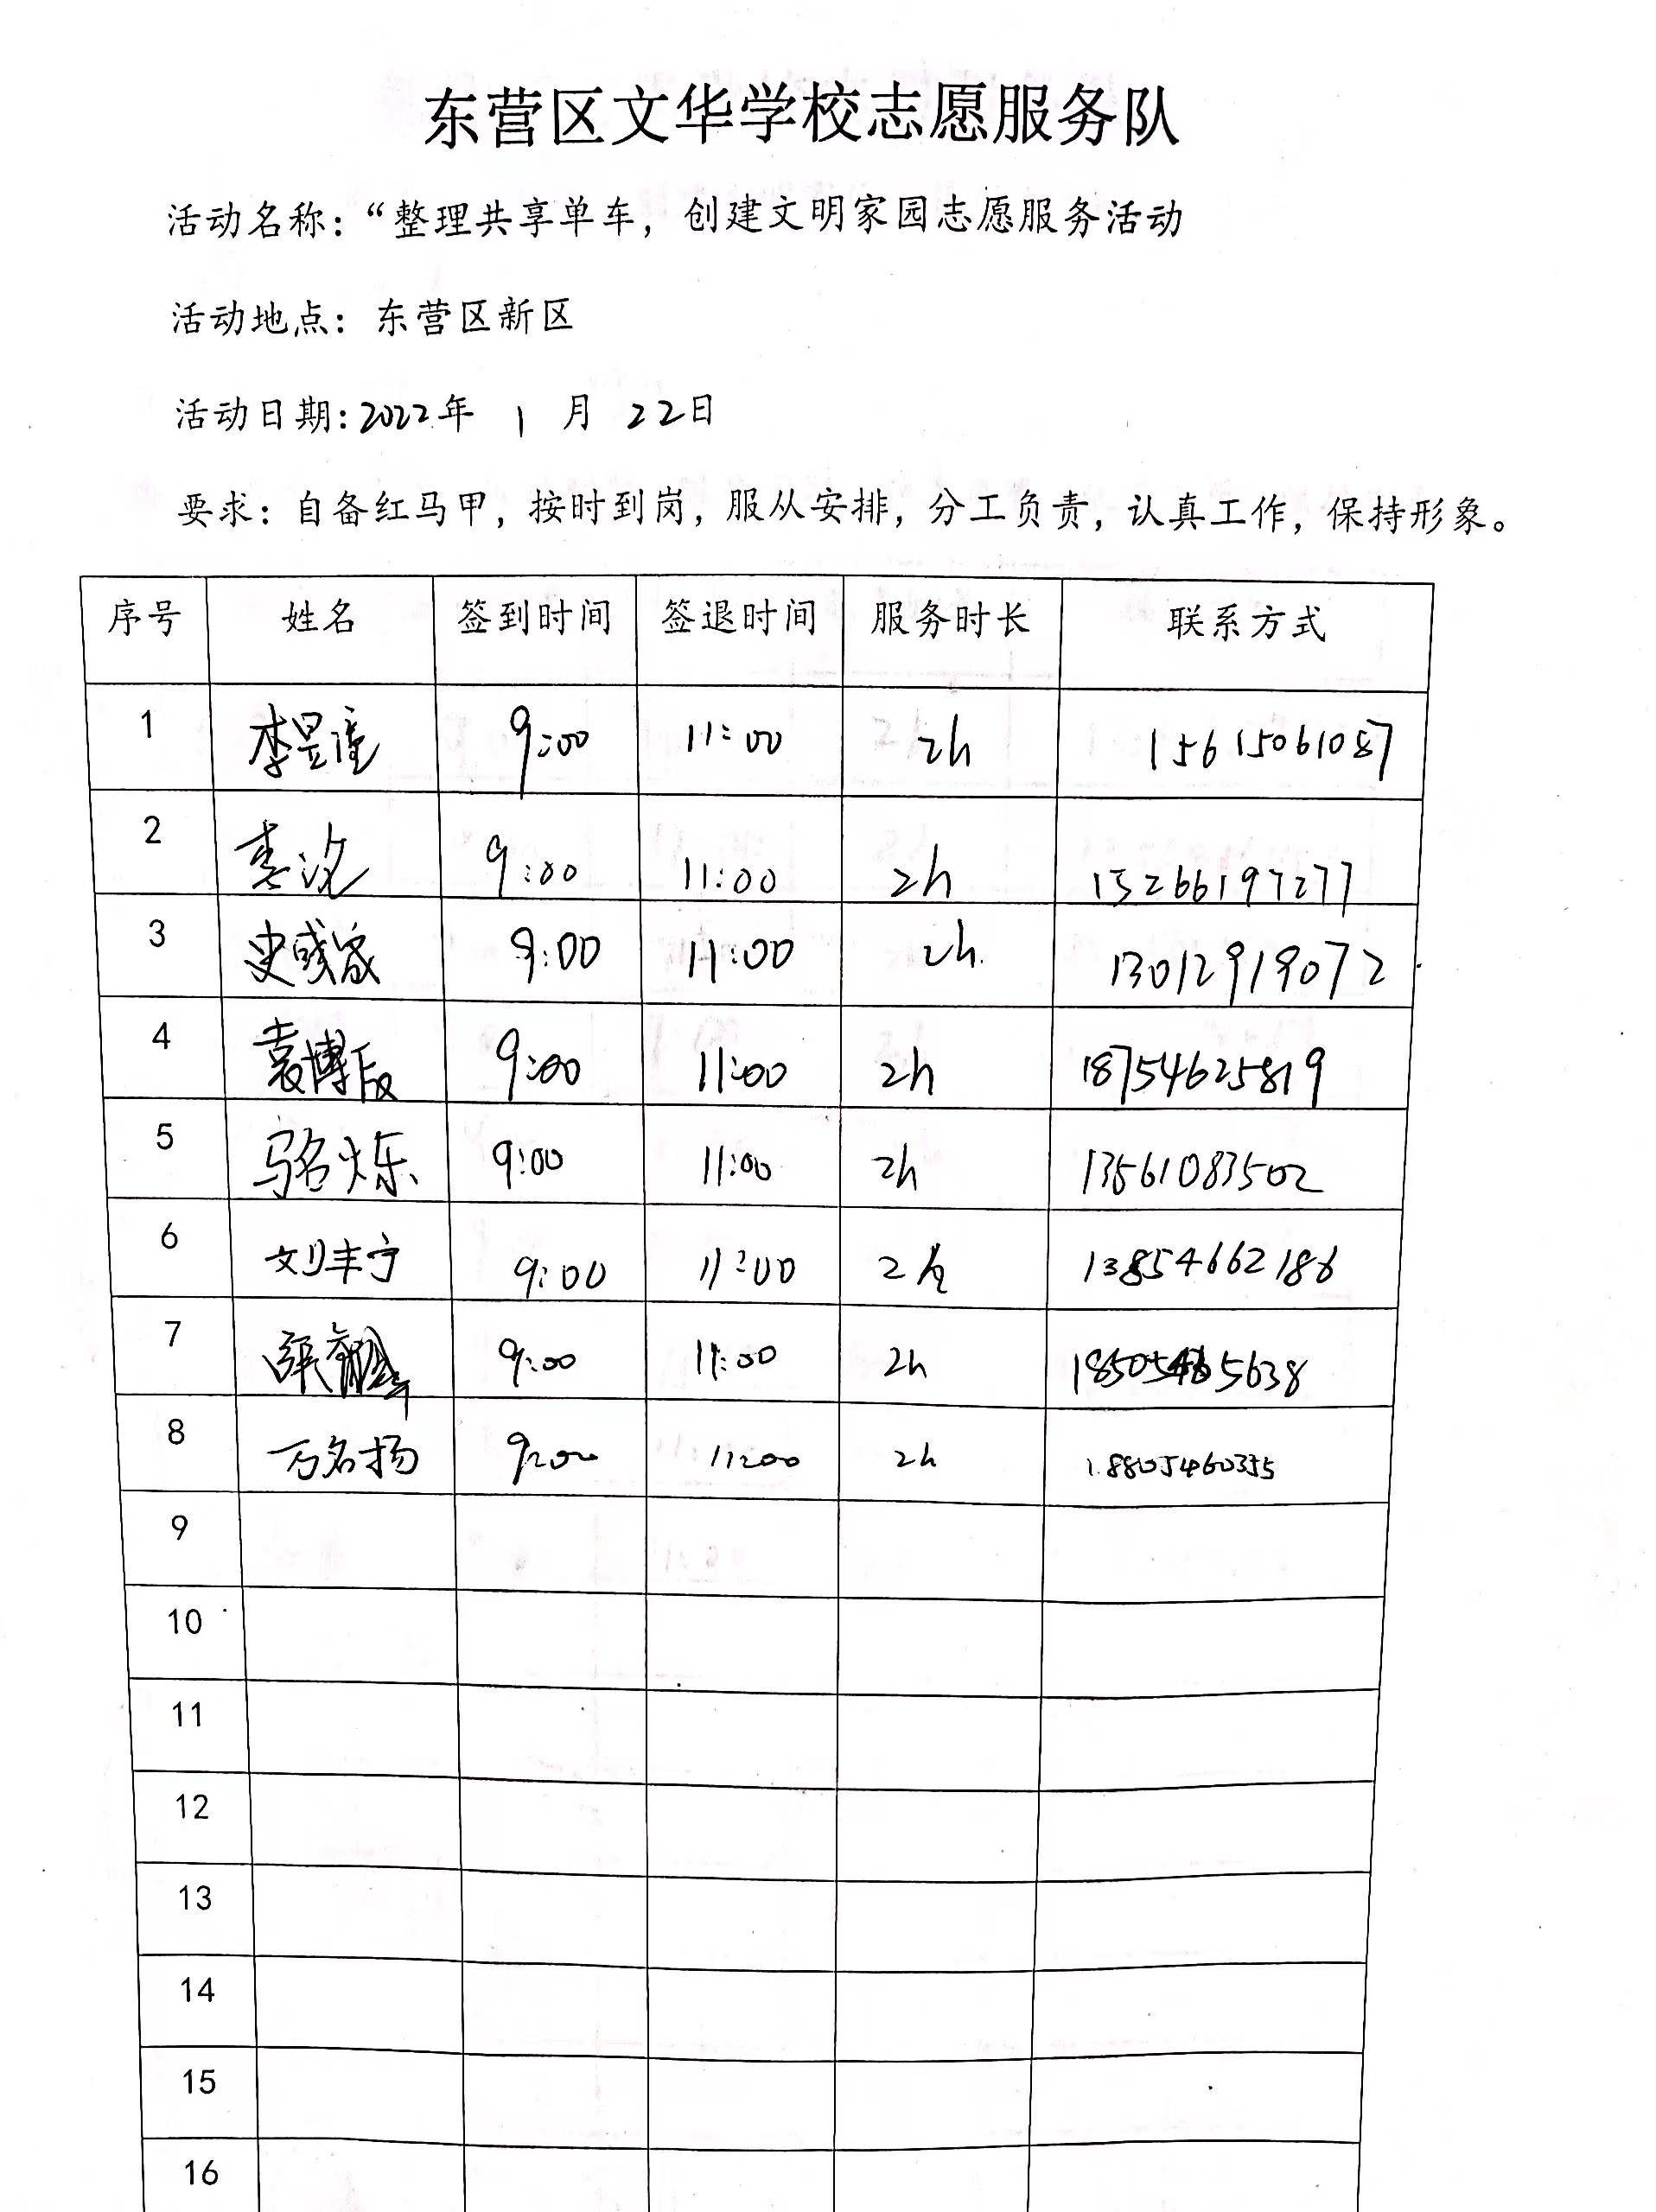 东营区文华学校志愿服务队
活动名称：“整理共享单车，创建文明家园志愿服务活动
活动地点：东营区新区
活动日期：2022年 1 月 22日
要求：自备红马甲，按时到岗，服从安排，分工负责，认真工作，保持形象。
序号 姓名 签到时间 签退时间 服务时长 联系方式
1 李昱潼 9:00 11:00 2h 15615061087
2 9:00 11:00 2h 15266197277
3 9:00 11:00 2h. 13012919072
4 袁博 9:00 11:00 2h 18754625819
5 骆名烁 9:00 11:00 2h 13561083502
6 刘丰宁 9:00 11:00 2h 13854662186
7 9:00 11:00 2h 18505465638
8 万名扬 9:00 11:00 2h 18805460355
9
10
11
12
13
14
15
16